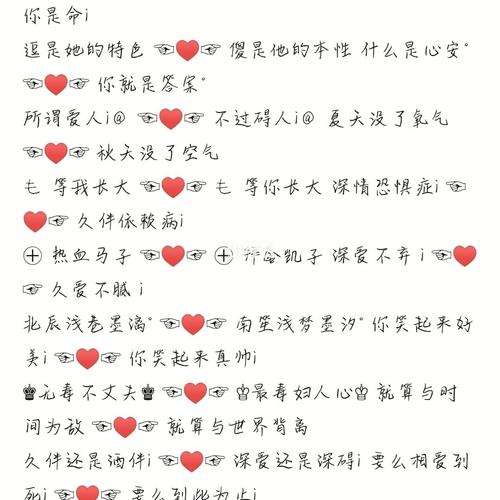 你是命i
逗是她的特色 ☜♥☞ 傻是他的本性 什么是心安°
☜♥☞ 你就是答案°
所谓爱人i@ ☜♥☞ 不过碍人i@ 夏天没了氧气
☜♥☞ 秋天没了空气
乇 等我长大 ☜♥☞ 乇 等你长大 深情恐惧症i ☜
♥☞ 久伴依赖病i
⊕ 热血马子 ☜♥☞ ⊕ 凯子 深爱不弃i ☜♥
☞ 久爱不腻i
北辰浅巷墨漓° ☜♥☞ 南笙浅梦墨汐° 你笑起来好
美i ☜♥☞ 你笑起来真帅i
♚无毒不丈夫♚ ☜♥☞ ♔最毒妇人心♔ 就算与时
间为敌 ☜♥☞ 就算与世界背离
久伴还是酒伴i ☜♥☞ 深爱还是深碍i 要么相爱到
死i ☜♥☞ 要么到此为止i